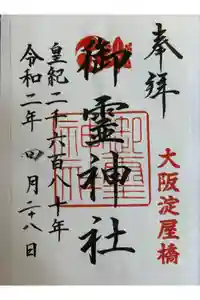 奉拝
大阪淀屋橋
御霊神社
皇紀二千六百八十年
令和二年 四月二十八日